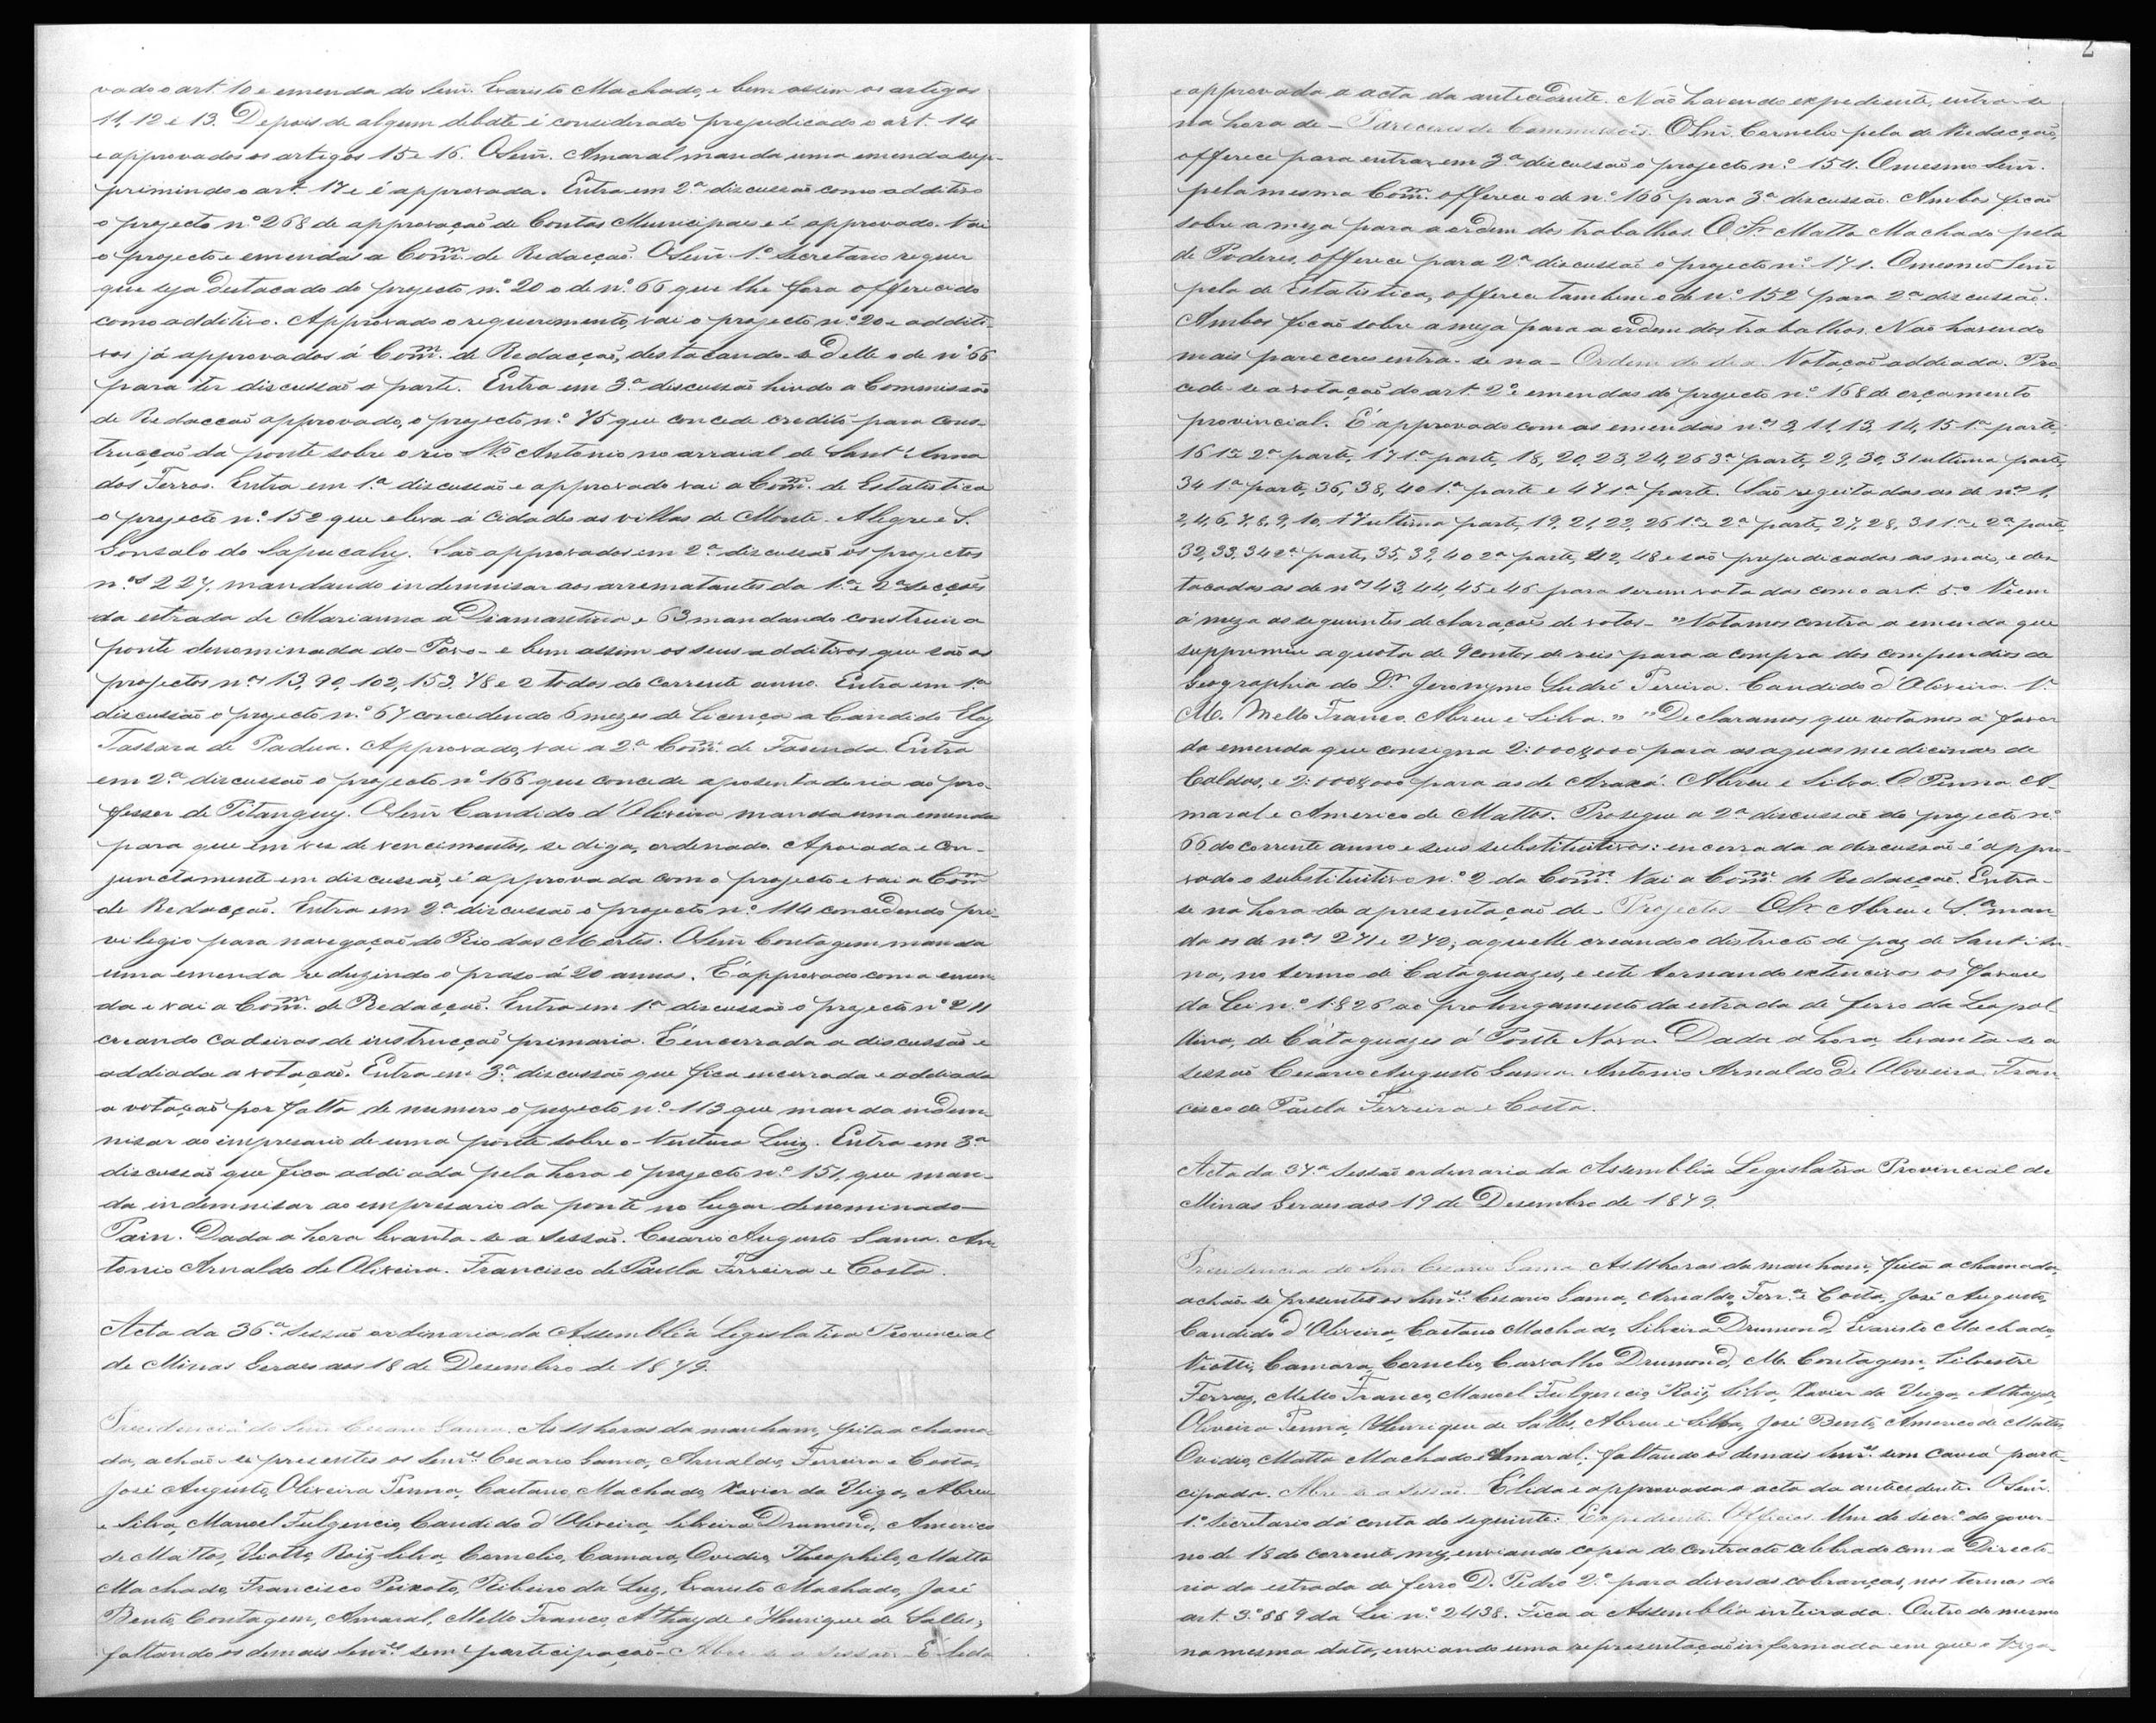 vado o art. 10 e emenda do Senr. Evaristo Machado, e bem assim os artigos
11, 12 e 13. Depois de algum debate é considerado prejudicado o art. 14
e approvados os artigos 15 e 16. O Senr. Amaral manda uma emenda sup-
primindo o art. 17 e é approvada. Entra em 2.ª discussaõ como additivo
o projecto nº 268 de approvaçaõ de Contas Municipaes e é approvado. Vai
o projecto e emendas a Com.m de Redacçaõ. O Senr. 1.º Secretario requer
que seja destacado do projecto n.º 20 o de n.º 66 que lhe fora offerecido
como additivo. Approvado o requerimento, vai o projecto n.º 20 e additi-
vos já approvados á Com.m de Redacçaõ, destacando-se delle o de nº 66
para ter discussaõ a parte. Entra em 3.ª discussaõ hindo a Commissaõ
de Redaccaõ approvado, o projecto n.º 75 que concede credito para cons-
trucçaõ da ponte sobre o rio Sto Antonio no arraial de Sant'Anna
dos Ferros. Entra em 1.ª discussaõ e approvado vai a Com.m de Estatistica
o projecto n.º 152 que eleva á cidades as villas de Monte-Alegre e S.
Gonsalo do Sapucahy. Saõ approvados em 2.ª discussaõ os projectos
n.os 227, mandando indemnisar aos arrematantes da 1.ª e 2.ª secções
da estrada de Marianna a Diamantina e 63 mandando construir a
ponte denominada do - Povo - e bem assim os seus additivos que saõ os
projectos nos 13, 90, 102, 153, 78 e 2 todos do corrente anno. Entra em 1.ª
discussaõ o projecto n.º 67 concedendo 6 mezes de licença a Candido Eloy
Tassara de Padua. Approvado, vai a 2.ª Com.m de Fasenda. Entra
em 2.ª discussaõ o projecto nº 166 que concede aposentadoria ao pro-
fessor de Pitanguy. O Senr Candido d'Oliveira manda uma emenda
para que em vez de vencimentos, se diga, ordenado. Apoiada e con-
junctamente em discussaõ, é approvada com o projecto e vai a Com.m
de Redacçaõ. Entra em 2.ª discussaõ o projecto n.º 114 concedendo pri-
vilegio para navegaçaõ do Rio das Mortes. O Senr Contagem manda
uma emenda reduzindo o praso á 20 annos. É approvado com a emen-
da e vai a Com.m de Redacçaõ. Entra em 1.ª discussaõ o projecto nº 211
creando cadeiras de instrucçaõ primaria. É encerrada a discussaõ e
addiada a votaçaõ. Entra em 3.ª discussaõ que fica encerrada e addiada
a votaçaõ por falta de numero o projecto n.º 113 que manda indem-
nisar ao impresario de uma ponte sobre o - Ventura Luiz. Entra em 3.ª
discussaõ que fica addiada pela hora o projecto n.º 151, que man-
da indemnisar ao empresario da ponte no lugar denominado -
Pain. Dada a hora levanta-se a sessaõ. Cesario Augusto Gama. An-
tonio Arnaldo de Oliveira. Francisco de Paula Ferreira e Costa.
Acta da 36.ª sessaõ ordinaria da Assembléa Legislativa Provincial
de Minas Geraes aos 18 de Desembro de 1879.
Presidencia do Senr Cesario Gama. As 11 horas da manham, feita a chama-
da, achaõ-se presentes os Senr.es Cesario Gama, Arnaldo, Ferreira e Costa,
José Augusto, Oliveira Penna, Caetano Machado, Xavier da Veiga, Abreu
e Silva, Manoel Fulgencio, Candido d'Oliveira, Silveira Drumond, Americo
de Mattos, Viotti, Roiz Silva, Cornelio, Camara, Ovidio, Theophilo, Matta
Machado, Francisco Peixoto, Ribeiro da Luz, Evaristo Machado, José
Bento, Contagem, Amaral, Mello Franco, Athayde e Henrique de Salles;
faltando os demais Senr.es sem participaçaõ. Abre-se a sessaõ. É lida
2
e approvada a acta da antecedente. Não havendo expediente, entra-se
na hora de - Pareceres de Commissões. O Snr. Cornelio pela de Redacçaõ,
offerece para entrar em 3.ª discussaõ o projecto n.º 154. O mesmo Senr.
pela mesma Com.m offerece o de n.º 166 para 3.ª discussaõ. Ambos ficaõ
sobre a meza para a ordem dos trabalhos. O Sr Matta Machado pela
de Poderes, offerece para 2.ª discussaõ o projecto n.º 171. O mesmo Senr
pela de Estatistica, offerece tambem o de n.º 152 para 2.ª discussaõ.
Ambos ficaõ sobre a meza para a ordem dos trabalhos. Naõ havendo
mais pareceres entra-se na - Ordem do dia. Votaçaõ addiada. Pro-
cede-se a votaçaõ do art. 2.º e emendas do projecto n.º 168 de orçamento
provincial. É approvado com as emendas nos 3, 11, 13, 14, 15 1.ª parte,
16 1.ª e 2.ª parte, 17 1.ª parte, 18, 20, 23, 24, 26 3.ª parte, 29, 30, 31 ultima parte,
34 1.ª parte, 36, 38, 40 1.ª parte e 47 1.ª parte. Saõ regeitadas as de nos 1,
2, 4, 6, 7, 8, 9, 10, 17 ultima parte, 19, 21, 22, 26 1.ª e 2.ª parte, 27, 28, 31 1.ª e 2.ª parte,
32, 33, 34 2.ª parte, 35, 39, 40 2.ª parte, 42, 48 e saõ prejudicadas as mais, e des-
tacadas as de nos 43, 44, 45 e 46 para serem votadas com o art. 5.º Veem
á meza as seguintes declarações de votos - "Votamos contra a emenda que
supprimiu a quota de 9 contos de reis para a compra dos compendios de
Geographia do Dr Jeronymo Sudré Pereira. Candido d'Oliveira. V.
M. Mello Franco. Abreu e Silva." "Declaramos que votamos a favor
da emenda que consigna 2:000$000 para as aguas medicinaes de
Caldas, e 2:000$000 para as de Araxá. Abreu e Silva. O. Penna. A-
maral e Americo de Mattos. Prosegue a 2.ª discussaõ do projecto n.º
66 do corrente anno e seus substitutivos: encerrada a discussaõ é appro-
vado o substituitivo n.º 2 da Com.m Vai a Com.m de Redacçaõ. Entra-
se na hora da apresentaçaõ de - Projectos - O Sr Abreu e S.ª man-
da os de nos 271 e 272; aquelle creando o districto de paz de
no termo de Cataguazes, e este tornando extencivos os favores
da Lei n.º 1:826 ao prolongamento da estrada de ferro da Leopol-
dina, de Cataguazes á Ponte Nova. Dada a hora, levanta-se a
sessaõ. Cesario Augusto Gama. Antonio Arnaldo de Oliveira. Fran-
cisco de Paula Ferreira e Costa.
Acta da 37.ª sessaõ ordinaria da Assembléa Legislativa Provincial de
Minas Geraes aos 19 de Desembro de 1879.
Presidencia do Senr Cesario Gama. As 11 horas da manham, feita a chamada,
achaõ-se presentes os Senr.es Cesario Gama, Arnaldo, Ferr.ª e Costa, José Augusto,
Candido d'Oliveira, Caetano Machado, Silveira Drumond, Evaristo Machado,
Viotti, Camara, Cornelio, Carvalho Drumond, M. Contagem, Silvestre
Ferraz, Mello Franco, Manoel Fulgencio, Roiz Silva, Xavier da Veiga, Athayde,
Oliveira Penna, Henrique de Salles, Abreu e Silva, José Bento, Americo de Mattos,
Ovidio, Matta Machado e Amaral; faltando os demais Senr.es sem causa parti-
cipada. Abre-se a sessaõ. É lida e approvada a acta da antecedente. O Senr.
1.º Secretario dá conta do seguinte: Expediente. Officios. Um do secr.º do gover-
no de 18 do corrente mez, enviando copia do contracto celebrado com a Directo-
ria da estrada de ferro D. Pedro 2.º para diversas cobranças, nos termos do
art. 3.º §§ 9 da Lei n.º 2438. Fica a Assembléa inteirada. Outro do mesmo
na mesma data, enviando uma representaçaõ informada em que o